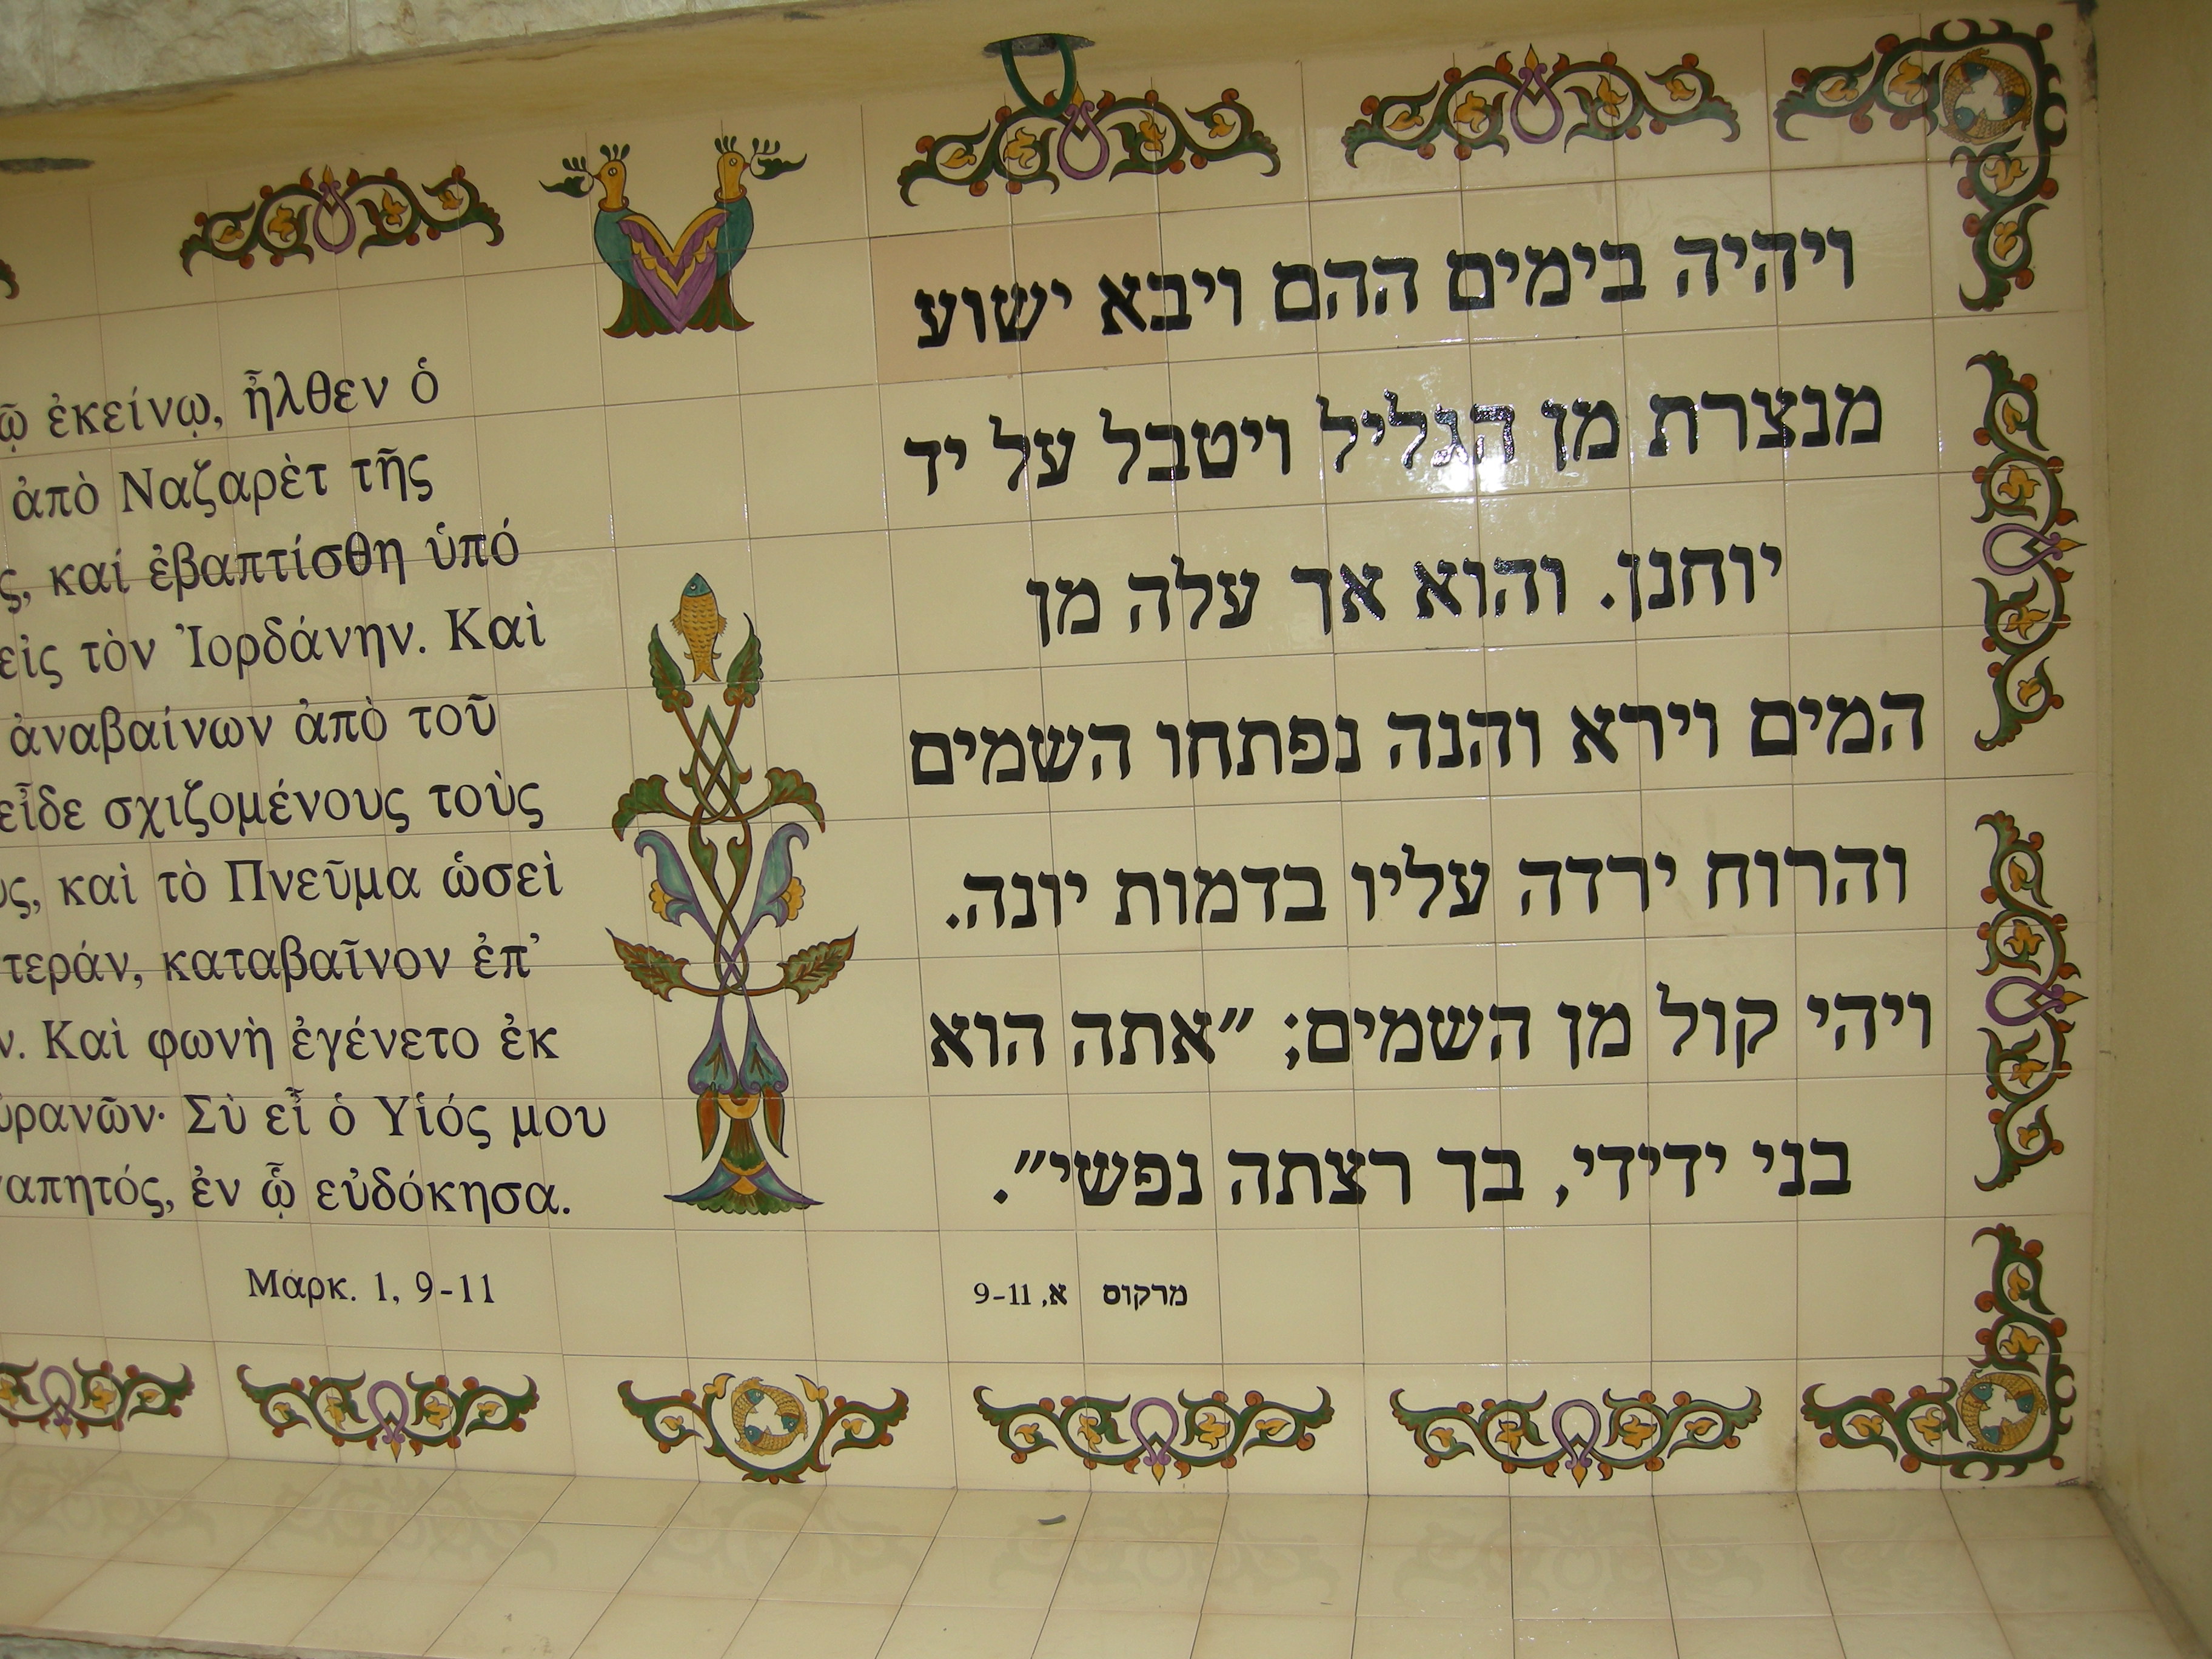 ἐκείνῳ, ἦλθεν ὁ
ἀπὸ Ναζαρὲτ τῆς
καί ἐβαπτίσθη ὑπό
εἰς τὸν Ἰορδάνην. Καὶ
ἀναβαίνων ἀπὸ τοῦ
εἶδε σχιζομένους τοὺς
καὶ τὸ Πνεῦμα ὡσεὶ
τεράν, καταβαῖνον ἐπ’
ν. Καὶ φωνὴ ἐγένετο ἐκ
ὐρανῶν· Σὺ εἶ ὁ Υἱός μου
απητός, ἐν ᾧ εὐδόκησα.
Μάρκ. 1, 9-11
ויהיה בימים ההם ויבא ישוע
מנצרת מן הגליל ויטבל על יד
יוחנן. והוא אך עלה מן
המים וירא והנה נפתחו השמים
והרוח ירדה עליו בדמות יונה.
ויהי קול מן השמים; ״אתה הוא
בני ידידי, בך רצתה נפשי״.
מרקוס א, 9-11